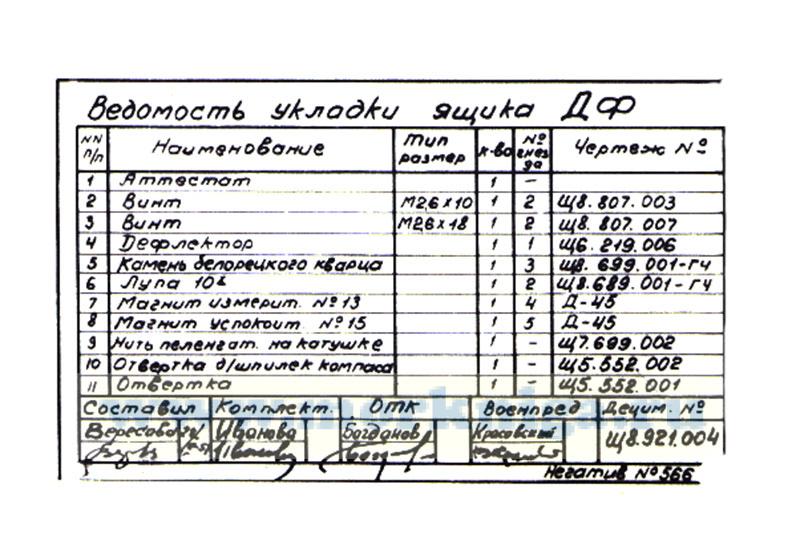 Ведомость укладки ящика ДФ
NN п/п Наименование Тип размер к-во № гнезда Чертеж №
1 Аттестат 1 -
2 Винт М2,6×10 1 2 Щ8.807.003
3 Винт М2,6×18 1 2 Щ8.807.007
4 Дефлектор 1 1 Щ6.219.006
5 Камень белорецкого кварца 1 3 Щ8.699.001-гч
6 Лупа 10х 1 2 Щ8.689.001-гч
7 Магнит измерит. №13 1 4 Д-45
8 Магнит успокоит. №15 1 5 Д-45
9 Нить пеленгат. на катушке 1 - Щ7.699.002
10 Отвертка д/шпилек компаса 1 - Щ5.552.002
11 Отвертка 1 - Щ5.552.001
Составил Комплект. ОТК Военпред Децим. №
Вересова Иванова Богданов Красовский Щ8.921.004
Негатив №566